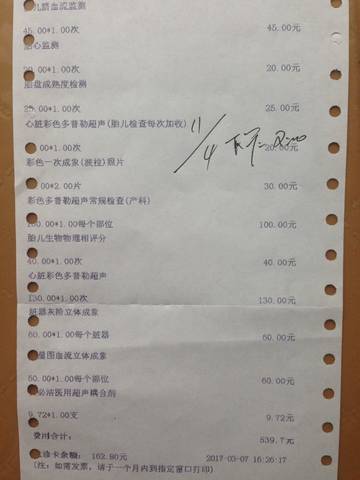 儿脐血流监测
45.00*1.00次 45.00元
胎心监测
20.00*1.00次 20.00元
胎盘成熟度检测
25.00*1.00次 25.00元
心脏彩色多普勒超声(胎儿检查每次加收)
11/4 下午 2:00
00*1.00次 20.00元
彩色一次成象(波拉)照片
00*2.00片 30.00元
彩色多普勒超声常规检查(产科)
100.00*1.00每个部位 100.00元
胎儿生物物理相评分
40.00*1.00次 40.00元
心脏彩色多普勒超声
130.00*1.00次 130.00元
脏器灰阶立体成象
60.00*1.00每个脏器 60.00元
图血流立体成象
60.00*1.00每个部位 60.00元
必洁医用超声耦合剂
9.72*1.00支 9.72元
费用合计: 539.7元
诊卡余额: 162.80元 2017-03-07 16:26:17
(注: 如需发票, 请于一个月内到指定窗口打印)